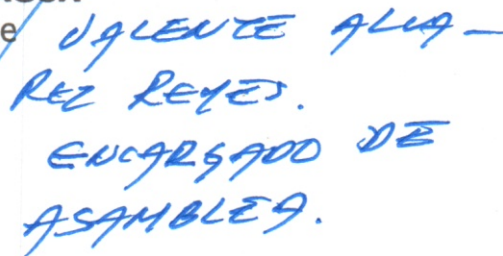 e VALENTE ALVA-
REZ REYES.
ENCARGADO DE
ASAMBLEA.